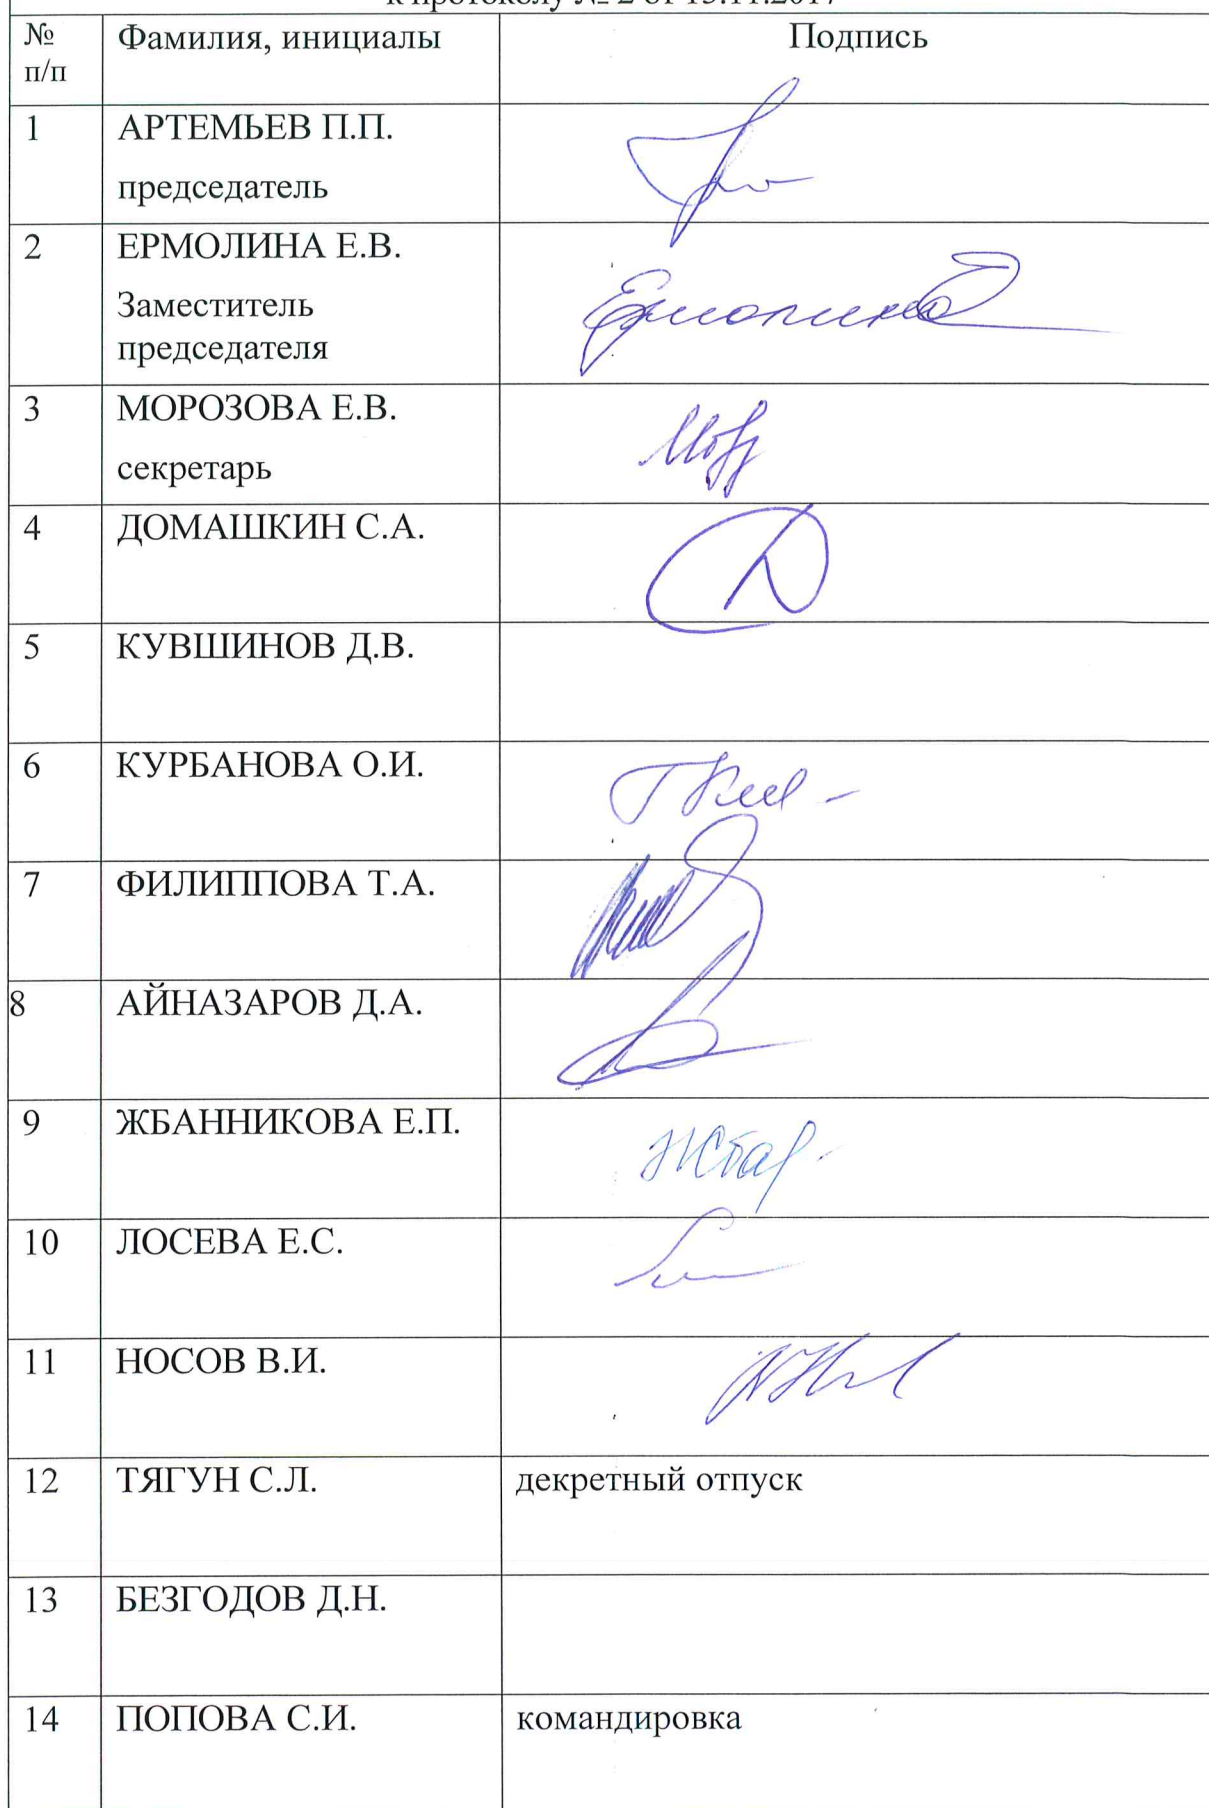 к протоколу № 2 от 15.11.2017
№ п/п Фамилия, инициалы Подпись
1 АРТЕМЬЕВ П.П.
председатель
2 ЕРМОЛИНА Е.В. Ермолина
Заместитель
председателя
3 МОРОЗОВА Е.В.
секретарь
4 ДОМАШКИН С.А.
5 КУВШИНОВ Д.В.
6 КУРБАНОВА О.И.
7 ФИЛИППОВА Т.А.
8 АЙНАЗАРОВ Д.А.
9 ЖБАННИКОВА Е.П.
10 ЛОСЕВА Е.С.
11 НОСОВ В.И.
12 ТЯГУН С.Л. декретный отпуск
13 БЕЗГОДОВ Д.Н.
14 ПОПОВА С.И. командировка